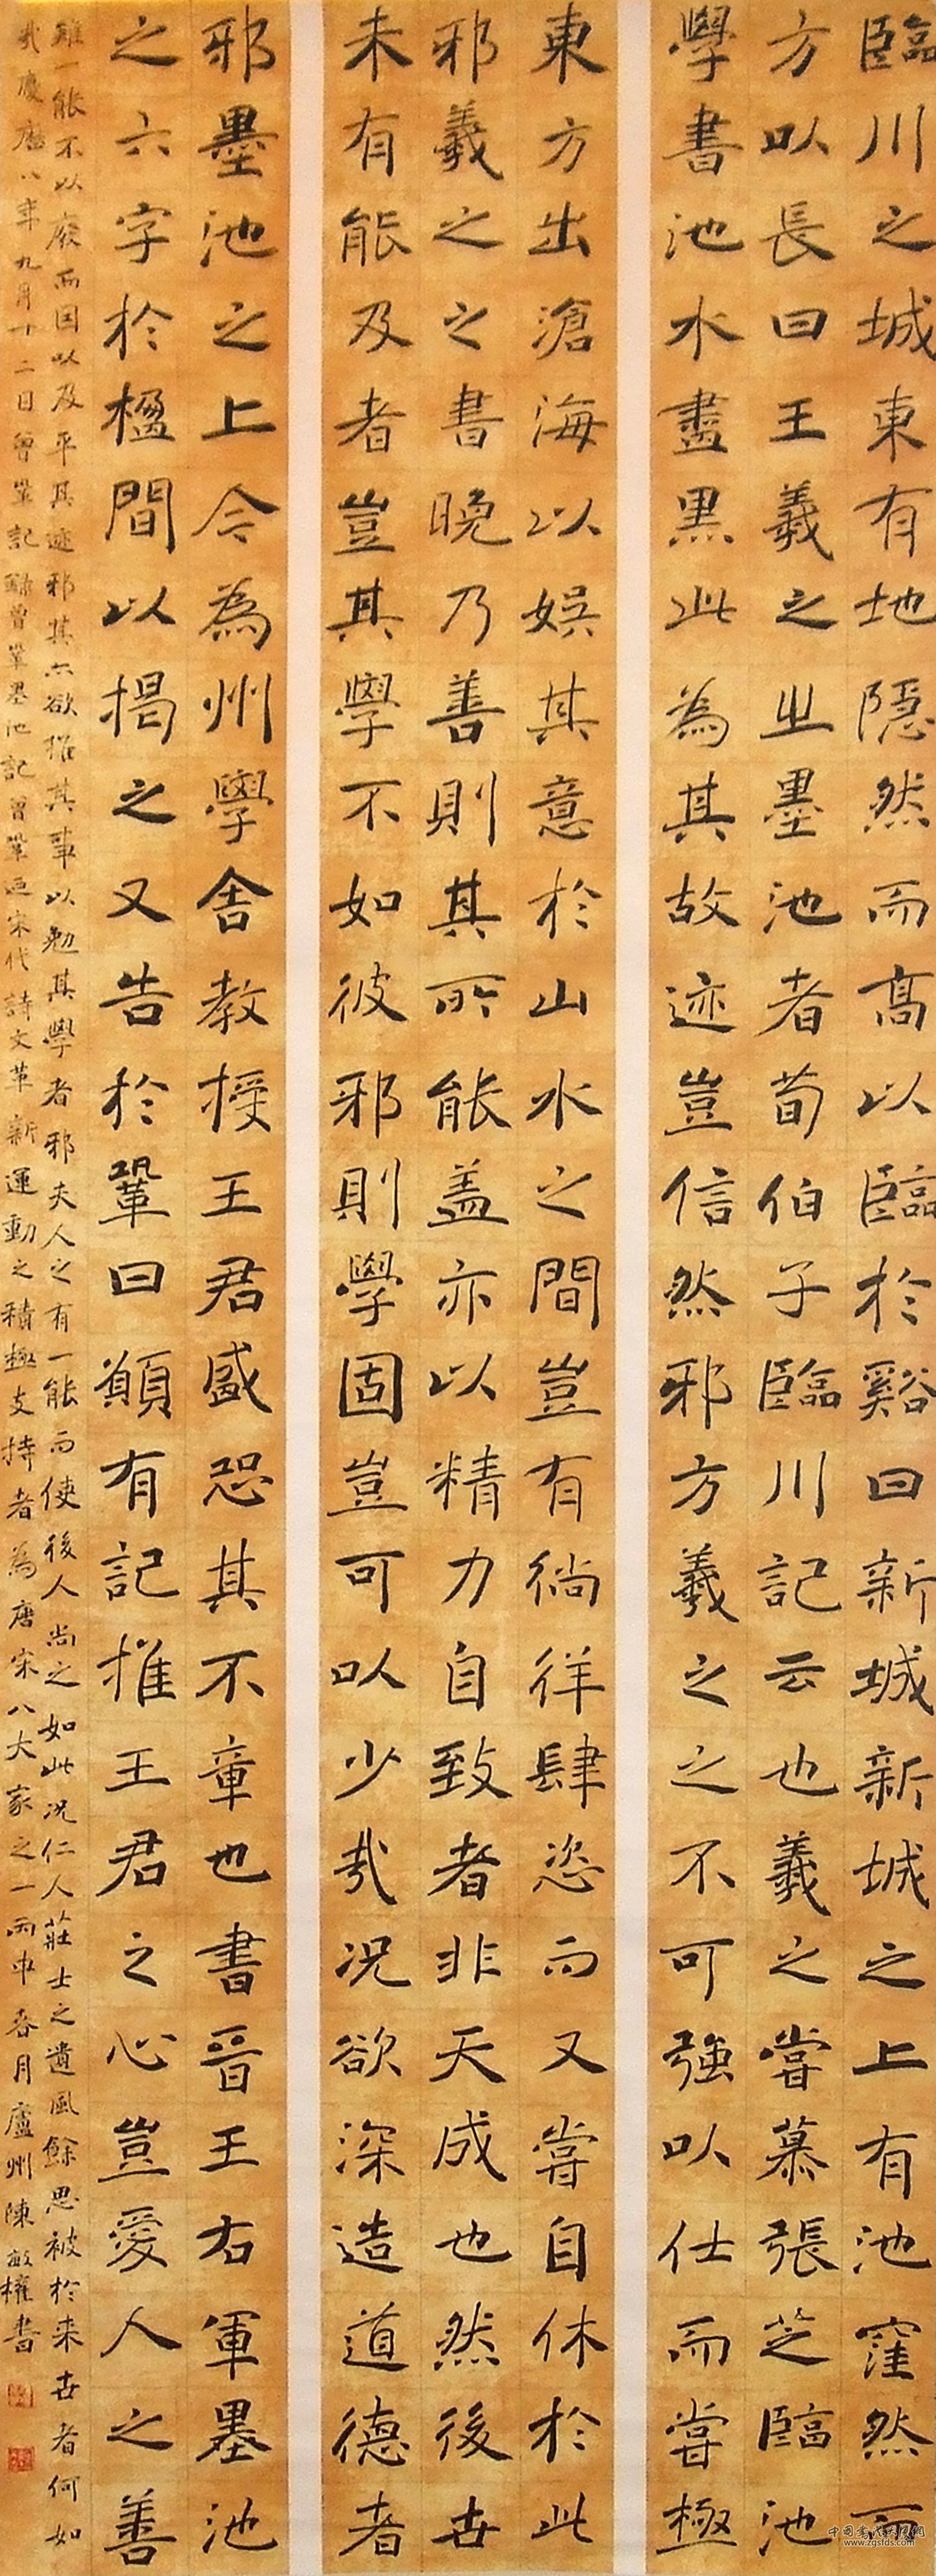 臨川之城東有地隱然而高以臨於谿曰新城新城之上有池窪然而
方以長曰王羲之㞢墨池者荀伯子臨川記云也羲之嘗慕張芝臨池
學書池水盡黑此為其故迹豈信然邪方羲之之不可強以仕而嘗極
東方出滄海以娛其意於山水之間豈有徜徉肆恣而又嘗自休於此
邪羲之之書晚乃善則其所能蓋亦以精力自致者非天成也然後世
未有能及者豈其學不如彼邪則學固豈可以少哉况欲深造道德者
邪墨池之上今為州學舍教授王君盛恐其不章也書晉王右軍墨池
之六字於楹間以揭之又告於鞏曰願有記推王君之心豈愛人之善
雖一能不以廢而因以及乎其迹邪其亦欲推其事以勉其學者邪夫人之有一能而使後人尚之如此况仁人莊士之遺風餘思被於来世者何如
哉慶曆八年九月十二日曾鞏記録曾鞏墨池記曾鞏迺宋代詩文革新運動之積極支持者為唐宋八大家之一丙申春月廬州陳敏權書
www.zgsfds.com